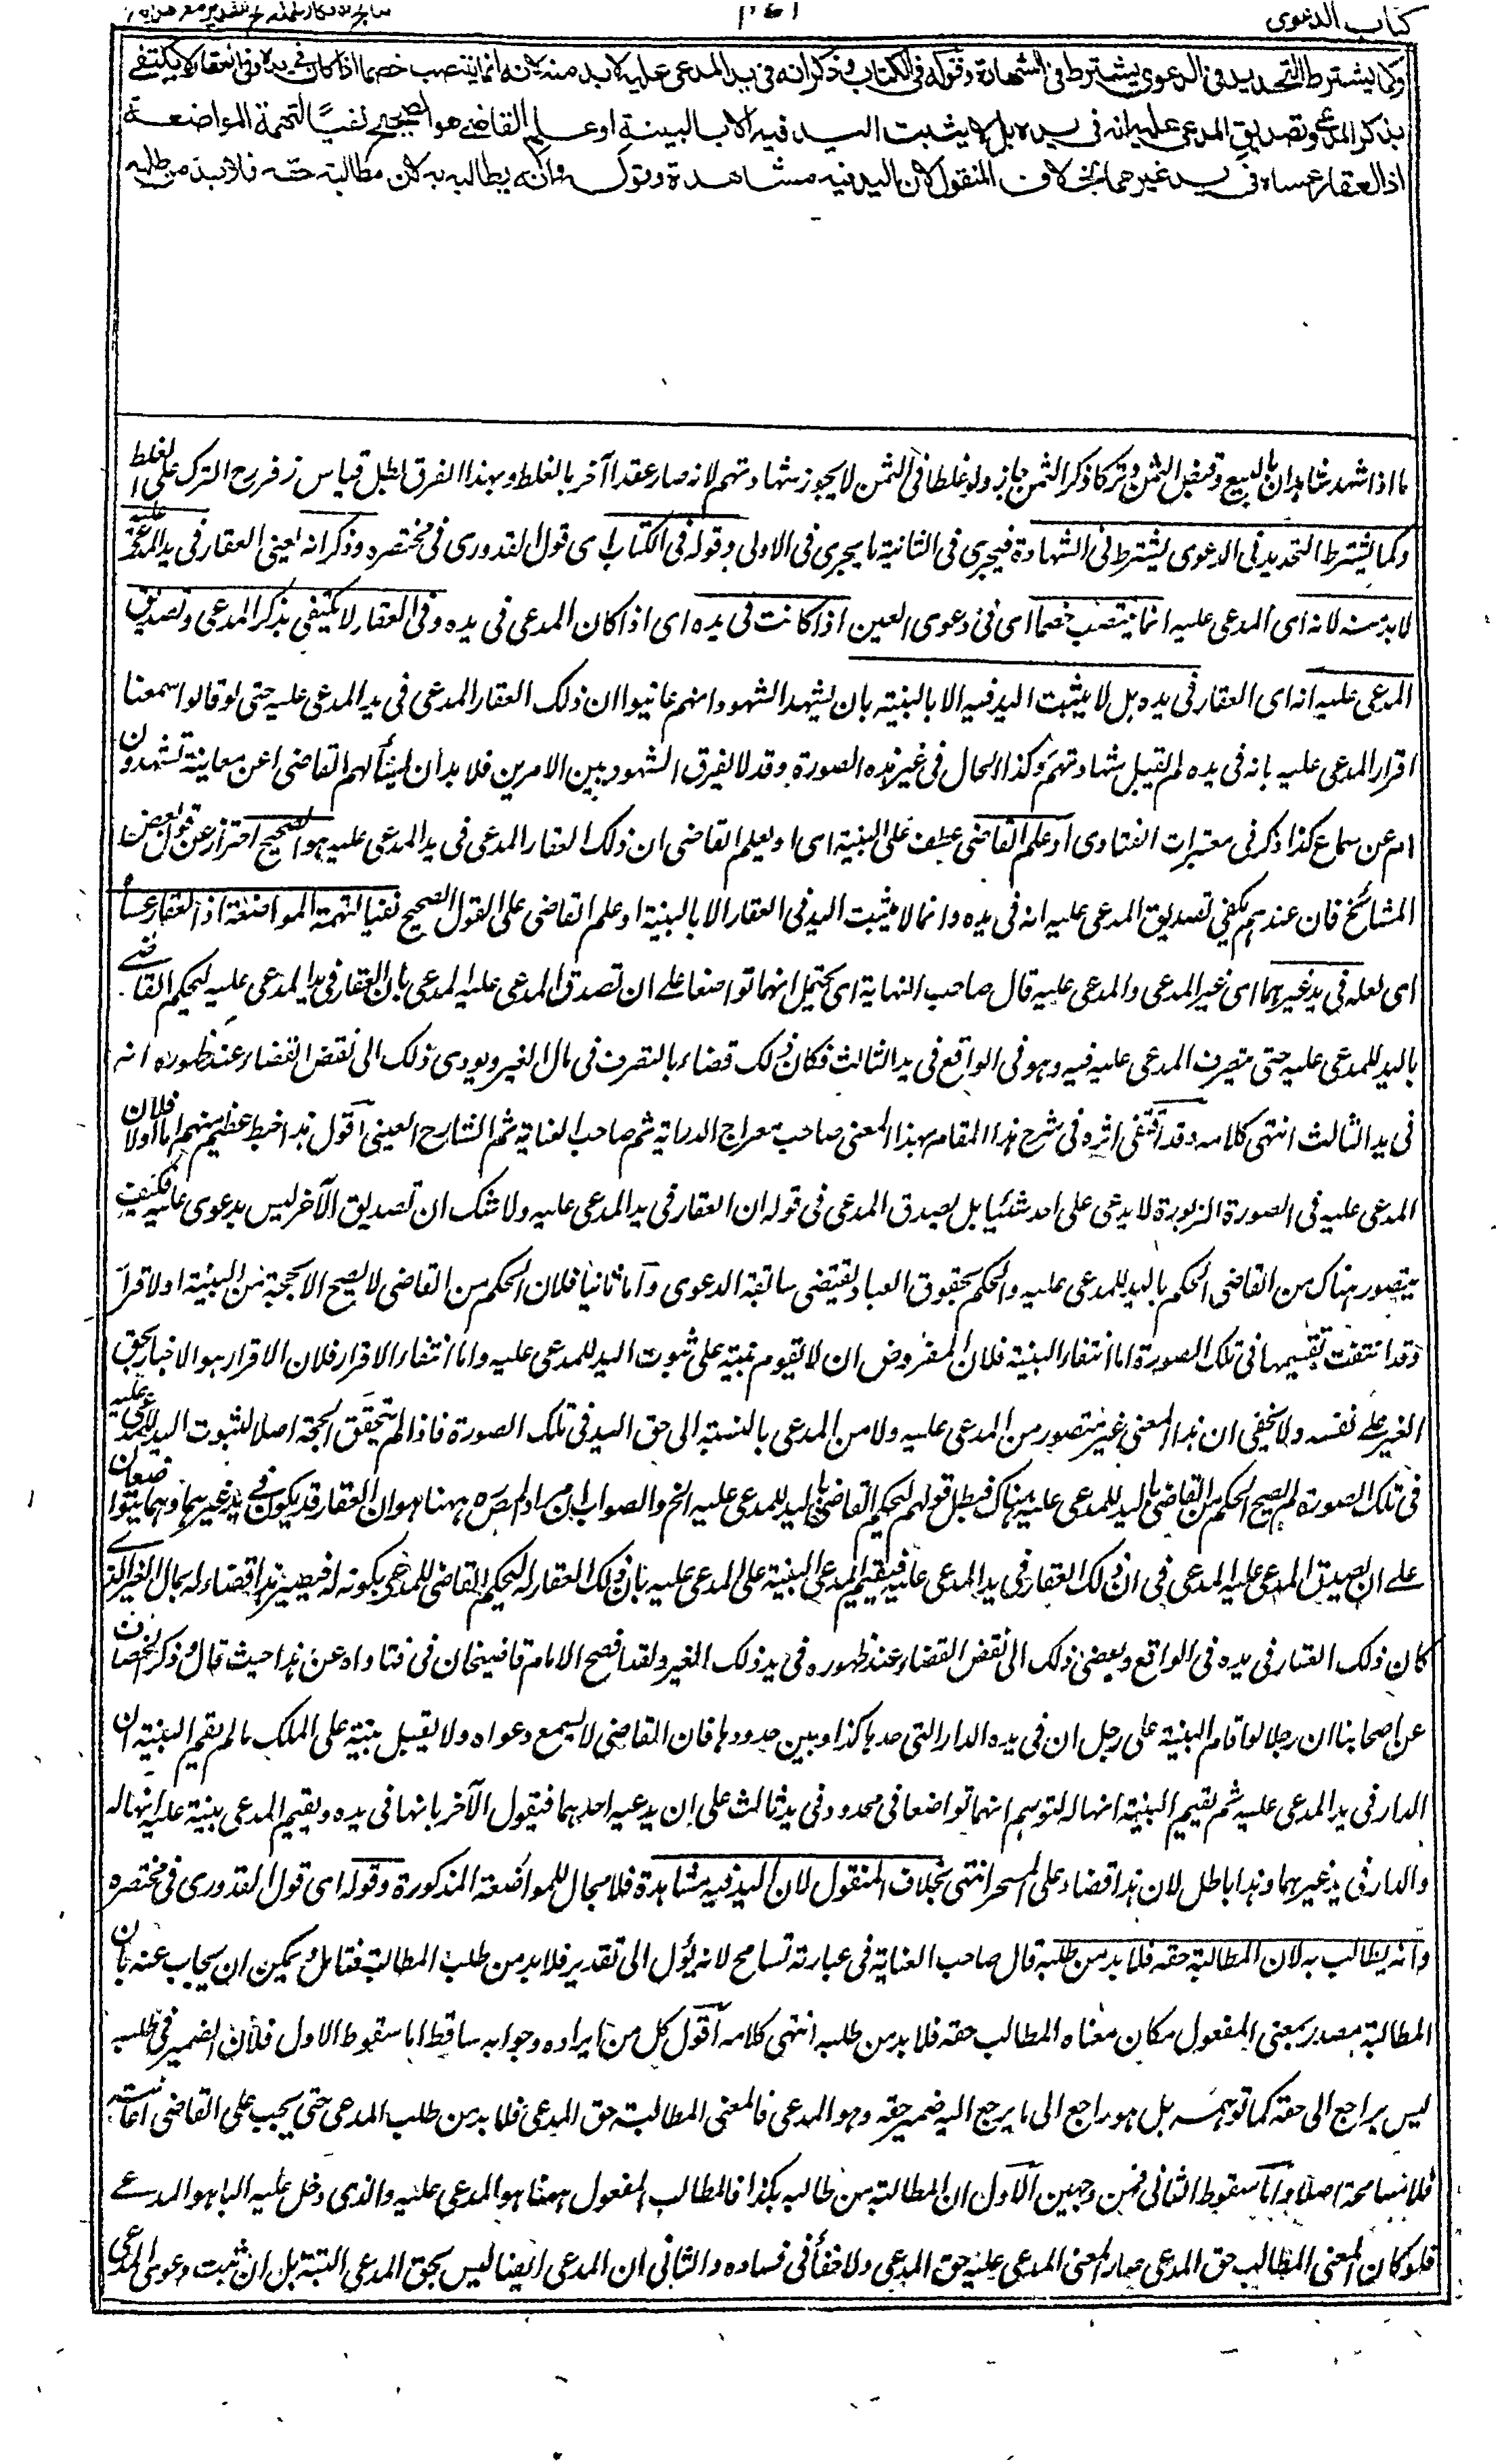 كتاب الدعوى
وكما يشترط التحديد في الدعوى يشترط في الشهادة وقوله في الكتاب وذكر انه في يد المدعى عليه لا بد منه لانه انما ينتصب خصما اذا كان في يده وفي العقار لا يكتفي
بذكر المدعي وتصديق المدعى عليه انه في يده بل لا يثبت اليد فيه الا بالبينة او علم القاضي هو الصحيح نفيا لتهمة المواضعة
اذ العقار عساه في يد غيرهما بخلاف المنقول لان اليد فيه مشاهدة وقوله وانه يطالبه به لان مطالبة حقه فلا بد من طلبه
ما اذا شهد شاهدان بالبيع وقبض الثمن وتركا ذكر الثمن جاز ولو غلطا في الثمن لا يجوز شهادتهم لانه صار عقدا آخر بالغلط وبهذا الفرق بطل قياس زفر رح الترك على الغلط
وكما يشترط التحديد في الدعوى يشترط في الشهادة فيجري في الثانية ما يجري في الاولى وقوله في الكتاب اى قول القدوري في مختصره وذكر انه يعني العقار في يد المدعى عليه
لا بد منه لانه اى المدعى عليه انما ينتصب خصما اى في دعوى العين اذا كانت في يده اى اذا كان المدعى في يده وفي العقار لا يكتفي بذكر المدعي وتصديق
المدعى عليه انه اى العقار في يده بل لا يثبت اليد فيه الا بالبينة بان يشهد الشهود انهم عاينوا ان ذلك العقار المدعى في يد المدعى عليه حتى لو قالوا سمعنا
اقرار المدعى عليه بانه في يده لم تقبل شهادتهم وكذا الحال في غير هذه الصورة وقد لا يفرق الشهود بين الامرين فلا بد ان يسألهم القاضي اعن معاينة تشهدون
ام عن سماع كذا ذكر في معتبرات الفتاوى او علم القاضي عطف على البينة اى او يعلم القاضي ان ذلك العقار المدعى في يد المدعى عليه هو الصحيح احتراز عن قول بعض
المشائخ فان عندهم يكفي تصديق المدعى عليه انه في يده وانما لا يثبت اليد في العقار الا بالبينة او علم القاضي على القول الصحيح نفيا لتهمة المواضعة اذ العقار عساه
اى لعله في يد غيرهما اى غير المدعي والمدعى عليه قال صاحب النهاية اى يحتمل انهما تواضعا على ان تصدق المدعى عليه المدعي بان العقار في يد المدعى عليه ليحكم القاضي
باليد للمدعى عليه حتى يتصرف المدعى عليه فيه وهو في الواقع في يد الثالث فكان ذلك قضاء بالتصرف في مال الغير ويودي ذلك الى نقض القضاء عند ظهوره انه
في يد الثالث انتهى كلامه وقد اقتفى اثره في شرح هذا المقام بهذا المعنى صاحب معراج الدراية ثم صاحب العناية ثم الشارح العيني اقول هذا خبط عظيم منهم اما اولا فلان
المدعى عليه في الصورة المزبورة لا يدعي على احد شيئا بل يصدق المدعي في قوله ان العقار في يد المدعى عليه ولا شك ان تصديق الآخر ليس بدعوى عليه فكيف
يتصور هناك من القاضي الحكم باليد للمدعى عليه والحكم بحقوق العباد يقتضي سابقة الدعوى واما ثانيا فلان الحكم من القاضي لا يصح الا بحجة من البينة او الاقرار
وقد انتفت بقسيمها في تلك الصورة اما انتفاء البينة فلان المفروض ان لا تقوم بينة على ثبوت اليد للمدعى عليه واما انتفاء الاقرار فلان الاقرار هو الاخبار بحق
الغير على نفسه ولا يخفى ان هذا المعنى غير متصور من المدعى عليه ولا من المدعي بالنسبة الى حق اليد في تلك الصورة فاذا لم تتحقق الحجة اصلا لثبوت اليد للمدعى عليه
في تلك الصورة لم يصح الحكم من القاضي باليد للمدعى عليه هناك فبطل قولهم ليحكم القاضي باليد للمدعى عليه الخ والصواب ان مراد المص ره ههنا هو ان العقار قد يكون في يد غيرهما وهما يتواضعان
على ان يصدق المدعى عليه المدعي في ان ذلك العقار في يد المدعى عليه فيقيم المدعي البينة على المدعى عليه بان ذلك العقار له ليحكم القاضي للمدعي بكونه له فيصير هذا قضاء له بمال الغير الذي
كان ذلك العقار في يده في الواقع ويفضي ذلك الى نقض القضاء عند ظهوره في يد ذلك الغير ولقد افصح الامام قاضيخان في فتاواه عن هذا حيث قال وذكر الخصاف
عن اصحابنا ان رجلا لو اقام البينة على رجل ان في يده الدار التي حدها كذا وبين حدودها فان القاضي لا يسمع دعواه ولا يقبل بينته على الملك ما لم يقم البينة ان
الدار في يد المدعى عليه ثم يقيم البينة انها له لتوهم انهما تواضعا في محدود في يد ثالث على ان يدعيه احدهما فيقول الآخر بانها في يده ويقيم المدعي بينة عليه انها له
والدار في يد غيرهما وهذا باطل لان هذا قضاء على المسخر انتهى بخلاف المنقول لان اليد فيه مشاهدة فلا مجال للمواضعة المذكورة وقوله اى قول القدوري في مختصره
وانه يطالب به لان المطالبة حقه فلا بد من طلبه قال صاحب العناية في عبارته تسامح لانه يؤل الى تقدير فلا بد من طلب المطالبة فتامل ويمكن ان يجاب عنه بان
المطالبة مصدر بمعنى المفعول فكان معناه المطالب حقه فلا بد من طلبه انتهى كلامه اقول كل من ايراده وجوابه ساقط اما سقوط الاول فلان الضمير في طلبه
ليس براجع الى حقه كما توهمه بل هو راجع الى ما يرجع اليه ضمير حقه وهو المدعي فالمعنى المطالبة حق المدعي فلا بد من طلب المدعي حتى يجب على القاضي اعانته
فلا مسامحة اصلا واما سقوط الثاني فمن وجهين الاول ان المطالبة من طالبه بكذا فالمطالب المفعول ههنا هو المدعى عليه والذي دخل عليه الباء هو المدعى
فلو كان المعنى المطالب حق المدعي صار المعنى المدعى عليه حق المدعي ولا خفأ في فساده والثاني ان المدعى ايضا ليس بحق المدعي البتة بل ان ثبت دعوى المدعي